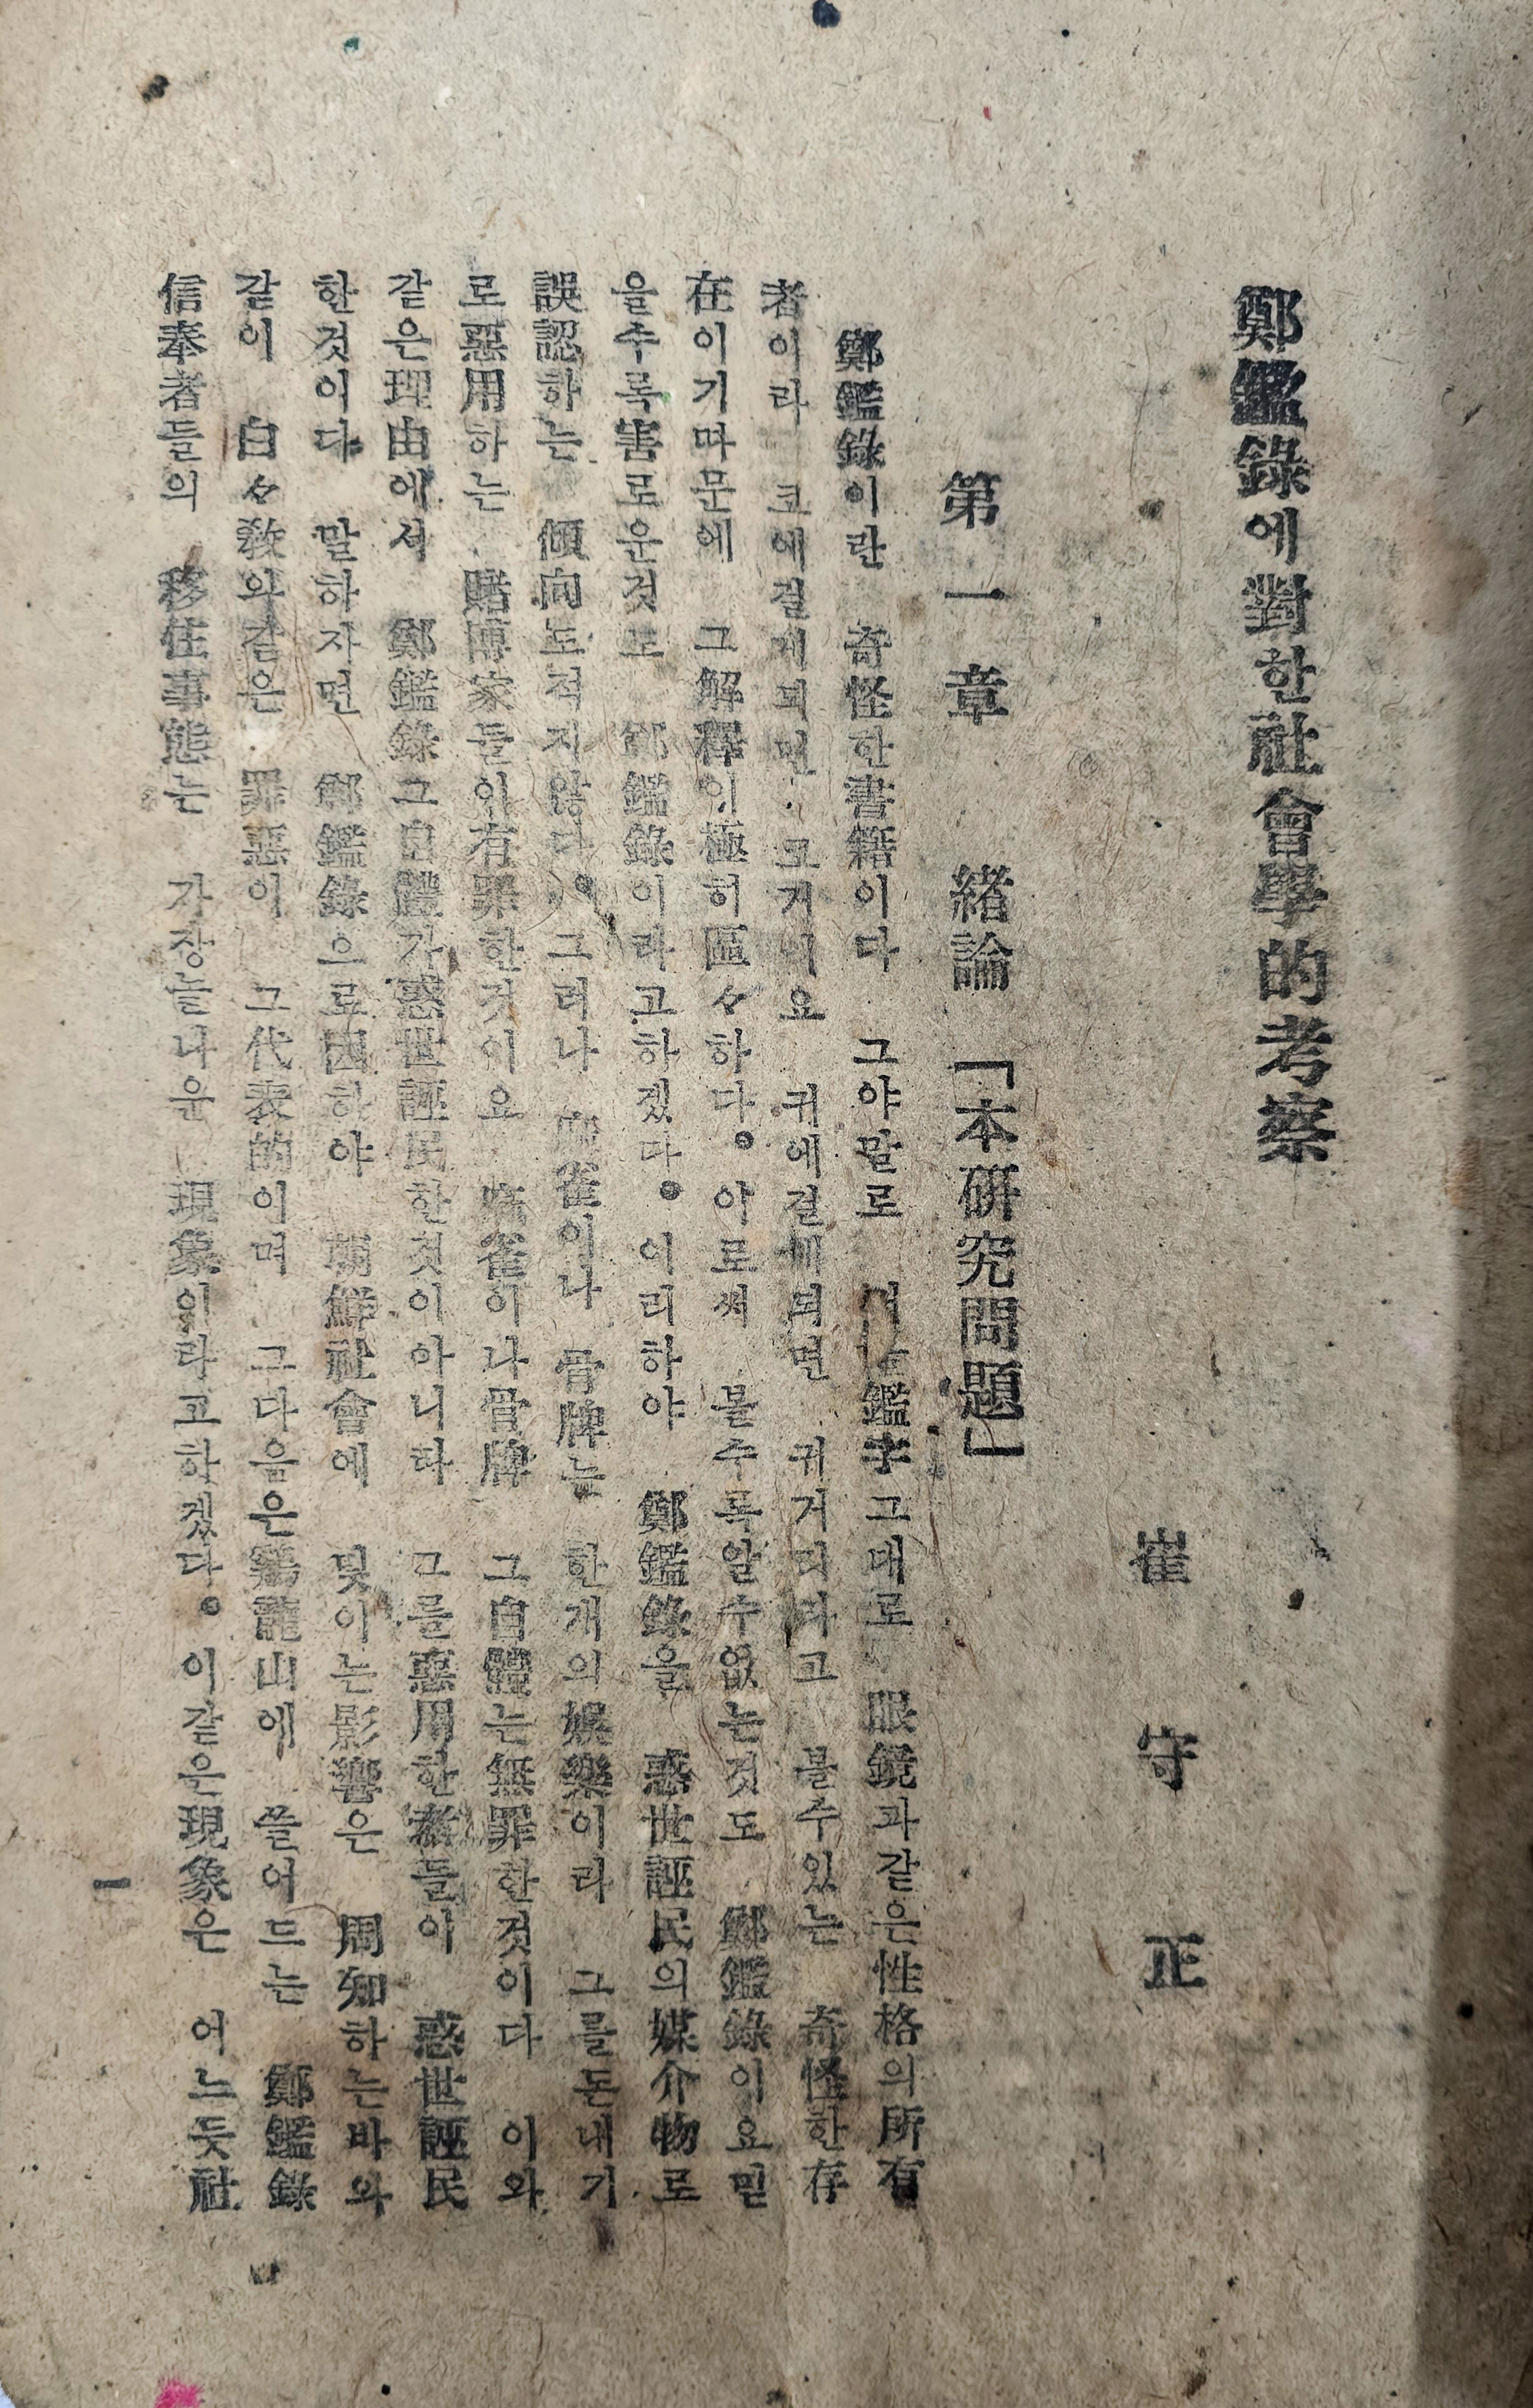 鄭鑑錄에對한社會學的考察
崔守正
第一章 緖論 「本硏究問題」
鄭鑑錄이란 奇怪한書籍이다 그야말로 鑑字그대로 眼鏡과같은性格의所有
者이라 코에걸게되면 코거리요 귀에걸게되면 귀거리라고 볼수있는 奇怪한存
在이기따문에 그解釋이極히區々하다。아로써 볼수록알수없는것도 鄭鑑錄이요믿
을수록害로운것도 鄭鑑錄이라고하겠다。이리하야 鄭鑑錄을 惑世誣民의媒介物로
誤認하는 傾向도적지않다。그러나 麻雀이나 骨牌는 한개의娛樂이라 그를돈내기
로惡用하는 賭博家들이有罪한것이요 麻雀이나骨牌 그自體는無罪한것이다 이와
같은理由에서 鄭鑑錄그自體가惑世誣民한것이아니라 그를惡用한者들이 惑世誣民
한것이다 말하자면 鄭鑑錄으로因하야 朝鮮社會에 및이는影響은 周知하는바와
같이 白々敎와같은 罪惡이 그代表的이며 그다음은鷄龍山에 쓸어드는 鄭鑑錄
信奉者들의 移住事態는 가장놀나운 現象이라고하겠다。이같은現象은 어느듯社
一